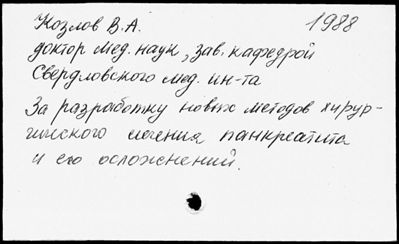 Козлов В.А. 1988
доктор мед. наук, зав. кафедрой
Свердловского мед. ин-та
За разработку новых методов хирур-
гического лечения панкреатита
и его осложнений.